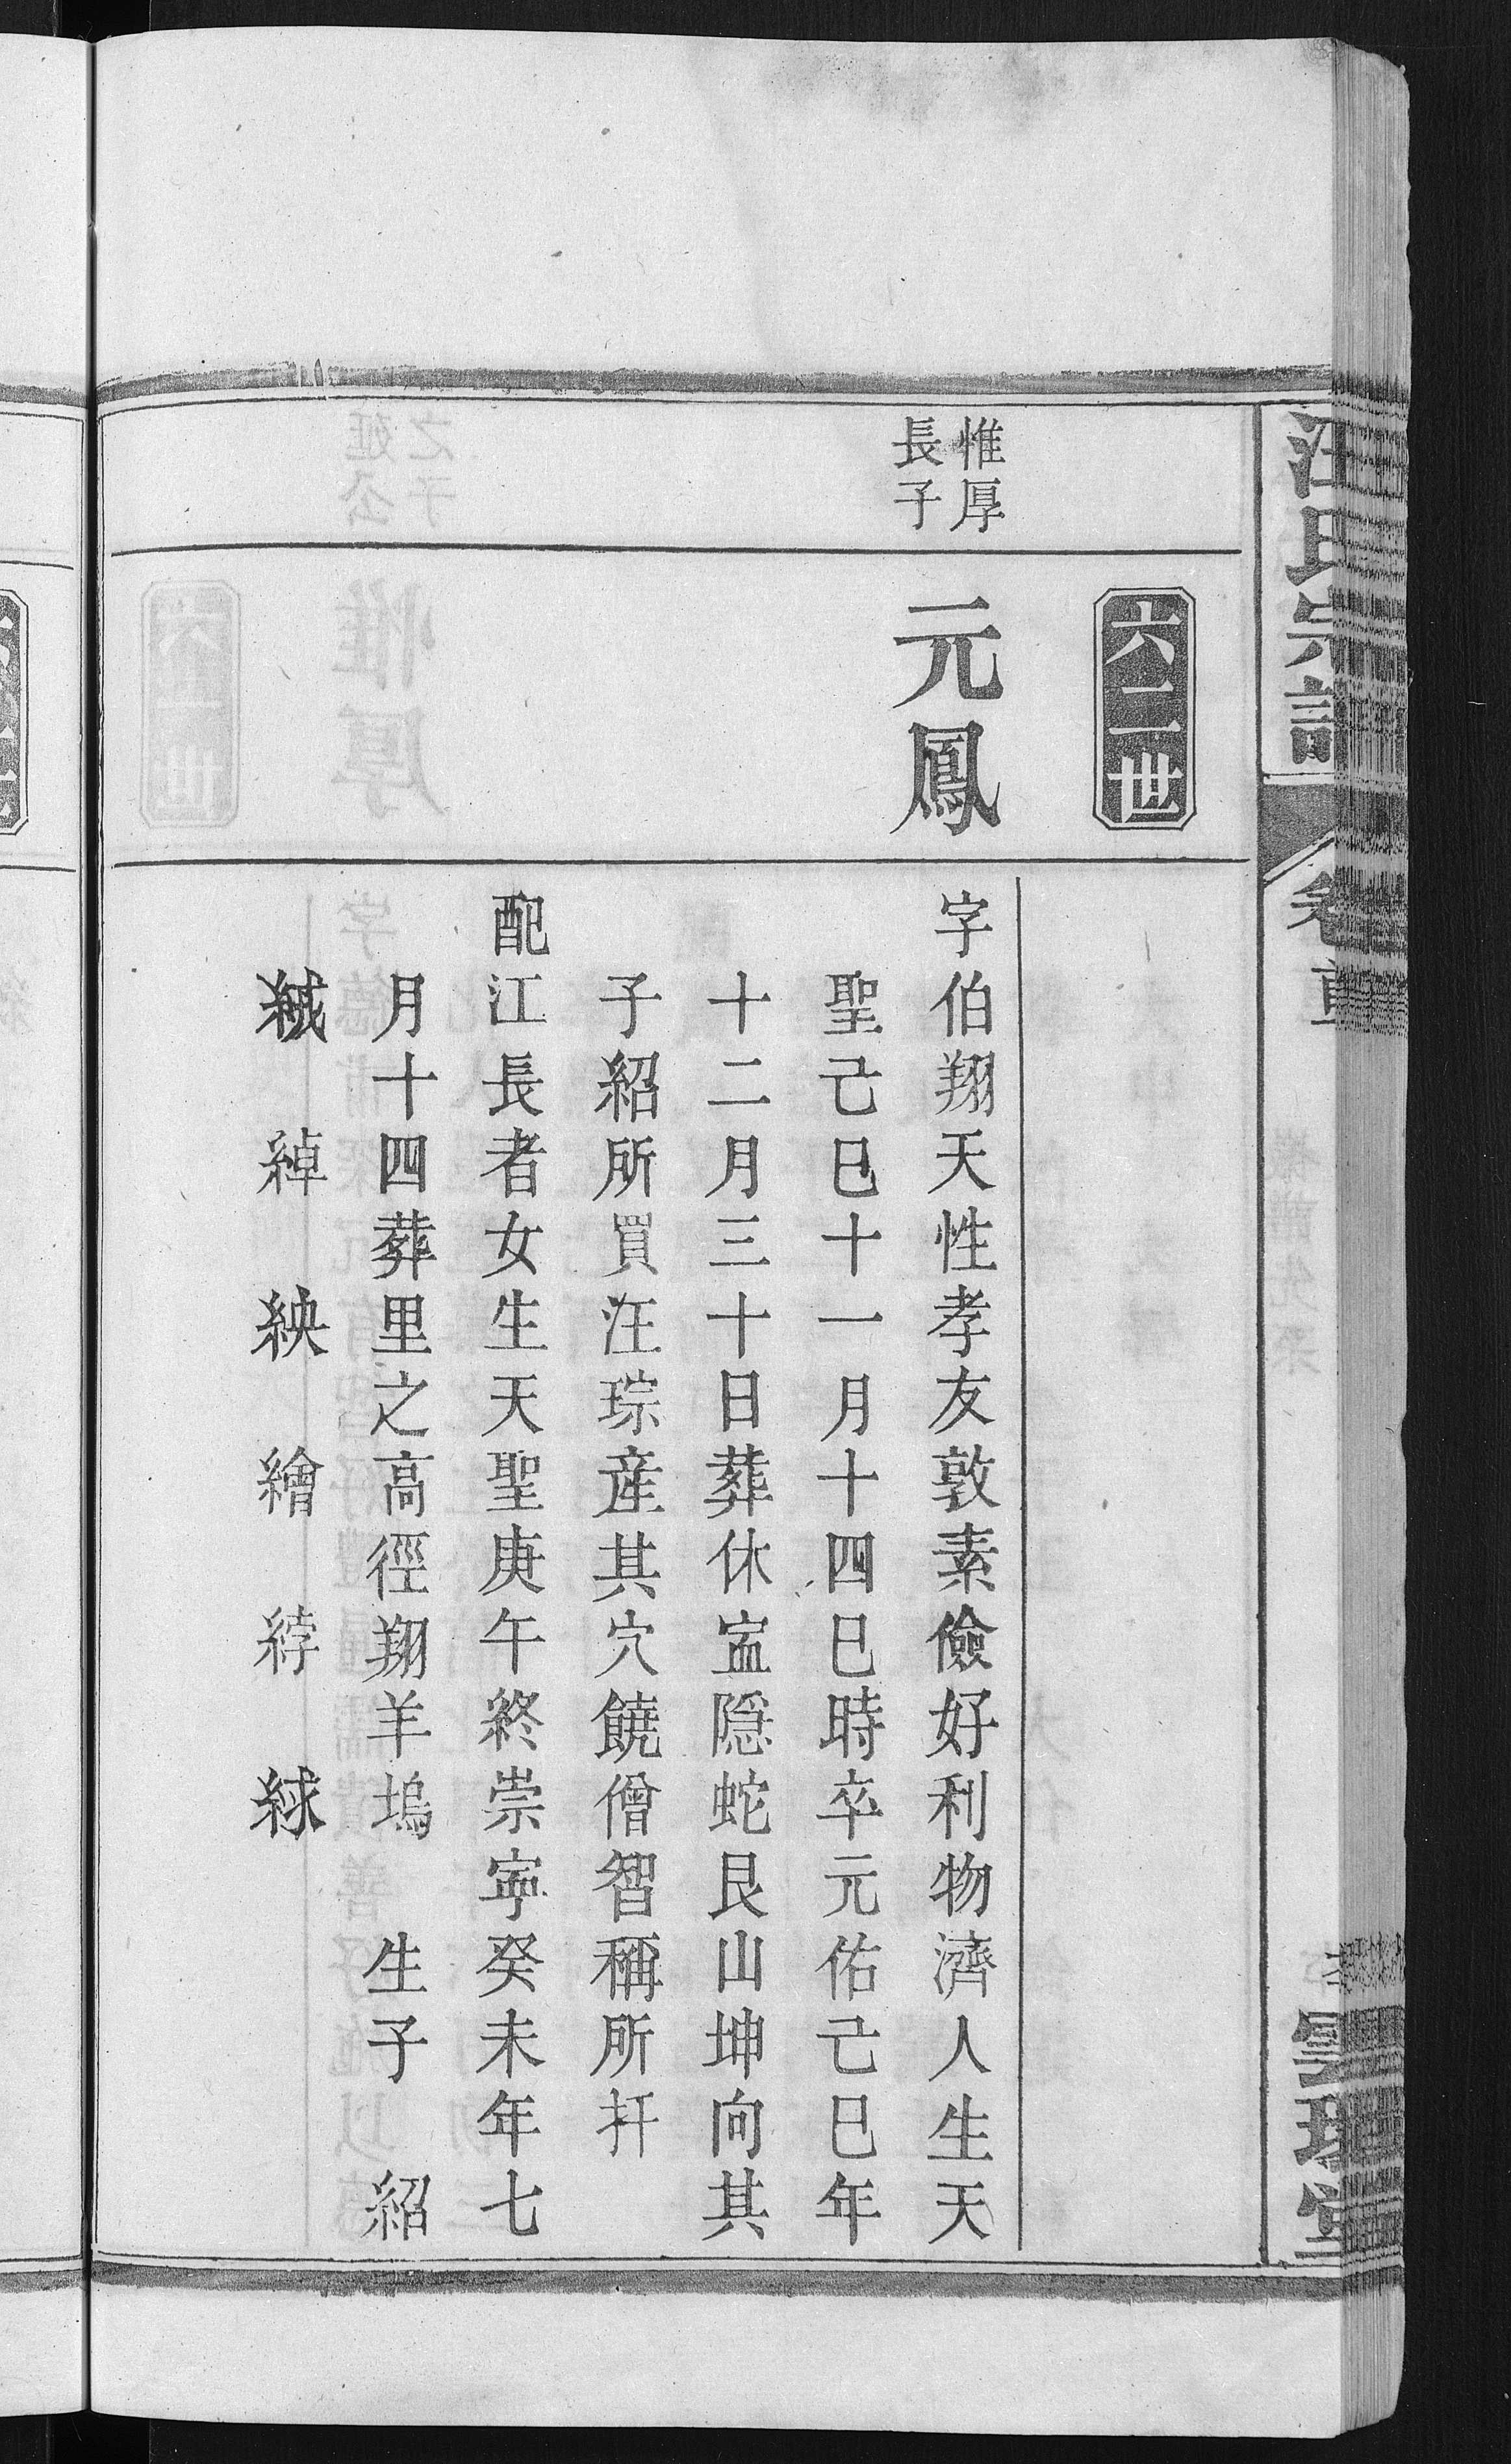 汪氏宗譜
卷首
六二世
惟厚
長子
元鳳
字伯翔天性孝友敦素儉好利物濟人生天
聖己巳十一月十四巳時卒元佑己巳年
十二月三十日葬休寍隱蛇艮山坤向其
子紹所買汪琮産其穴饒僧智稱所扦
配江長者女生天聖庚午終崇寧癸未年七
月十四葬里之高徑翔羊塢 生子 紹
絨 綽 紻 繪 綍 絿